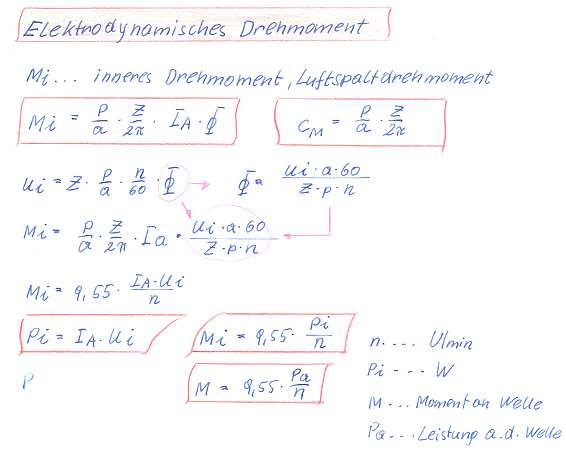 Elektrodynamisches Drehmoment
Mi... inneres Drehmoment, Luftspaltdrehmoment
Mi = p/a · z/2π · IA · Φ    CM = p/a · z/2π
Ui = z · p/a · n/60 · Φ → Φ = Ui·a·60/z·p·n
Mi = p/a · z/2π · Ia · Ui·a·60/z·p·n
Mi = 9,55 · IA·Ui/n
Pi = IA·Ui    Mi = 9,55 · Pi/n    n.... U/min
P    M = 9,55 · Pa/n    Pi --- W
M ... Moment an Welle
Pa ... Leistung a.d. Welle